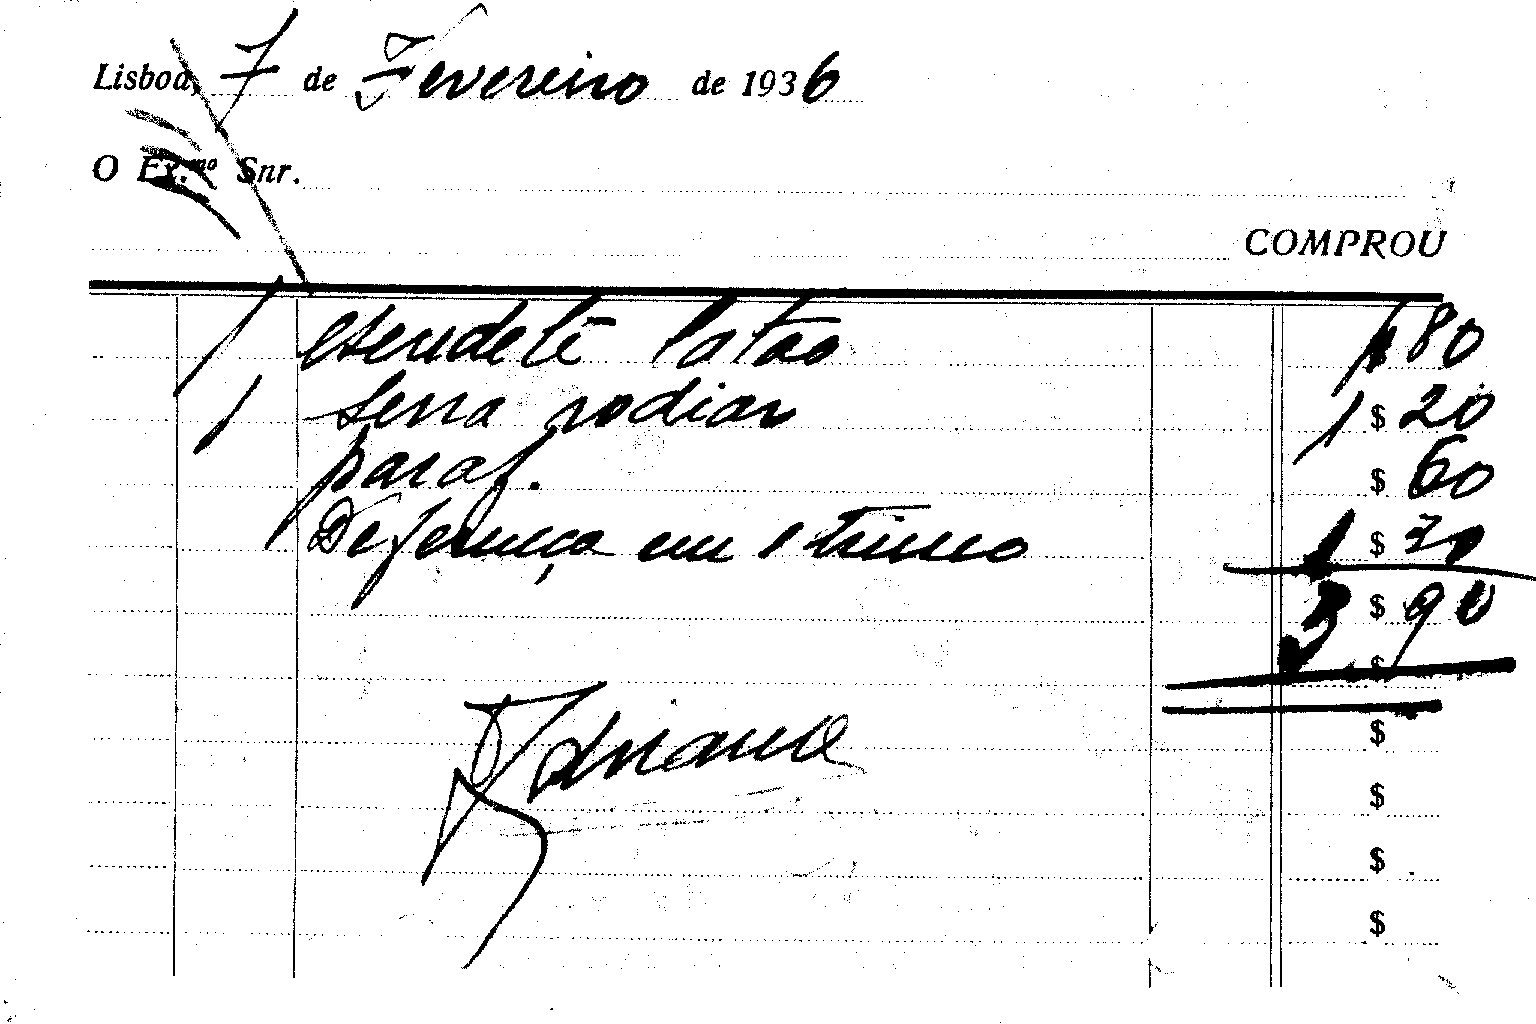 Lisboa, 7 de Fevereiro de 1936
O Ex.mo Snr.
COMPROU
1 latão $80
1 Serra rodiar 1$20
paraf. $60
Deferença em 1 trinco 1$30
3$90
$
Adriano
$
$
$
$